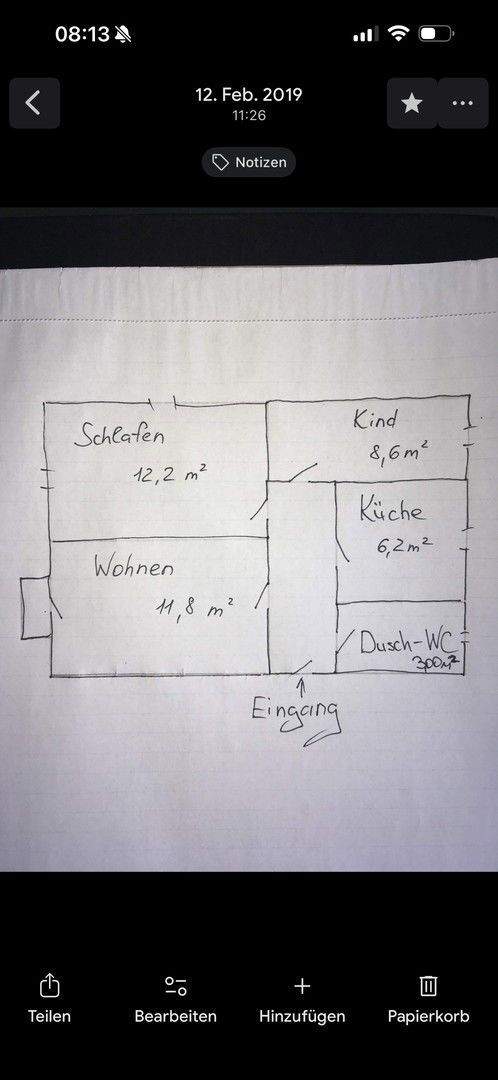 08:13
12. Feb. 2019
11:26
Notizen
Schlafen
12,2 m²
Kind
8,6 m²
Küche
6,2 m²
Wohnen
11,8 m²
Dusch-WC
3,00 m²
Eingang
Teilen
Bearbeiten
Hinzufügen
Papierkorb